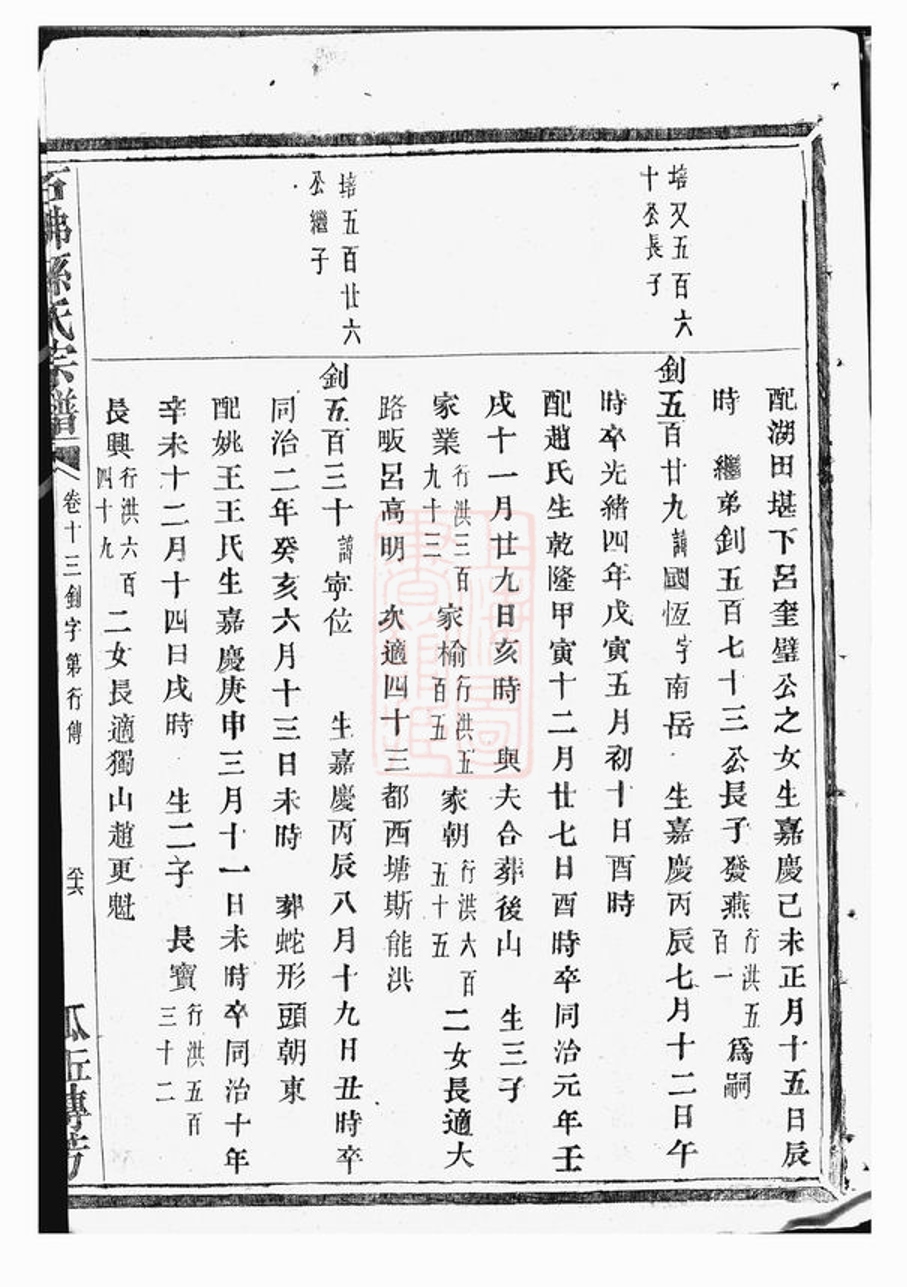 培又五百六
十公長子
配湖田堪下呂奎璧公之女生嘉慶己未正月十五日辰
時 繼弟釗五百七十三公長子發燕行洪五百一為嗣
釗五百廿九諱國恆字南岳 生嘉慶丙辰七月十二日午
時卒光緒四年戊寅五月初十日酉時
配趙氏生乾隆甲寅十二月廿七日酉時卒同治元年壬
戌十一月廿九日亥時 與夫合葬後山 生三子
家業行洪三百九十三 家榆行洪五百五 家朝行洪六百五十五 二女長適大
路畈呂高明 次適四十三都西塘斯能洪
培五百廿六
公繼子
釗五百三十諱寧位 生嘉慶丙辰八月十九日丑時卒
同治二年癸亥六月十三日未時 葬蛇形頭朝東
配姚王王氏生嘉慶庚申三月十一日未時卒同治十年
辛未十二月十四日戌時 生二子 長寶行洪五百三十二
長興行洪六百四十九 二女長適獨山趙更魁
石佛孫氏宗譜 卷十三釗字第行傳 瓜丘傳芳
上海圖書館藏